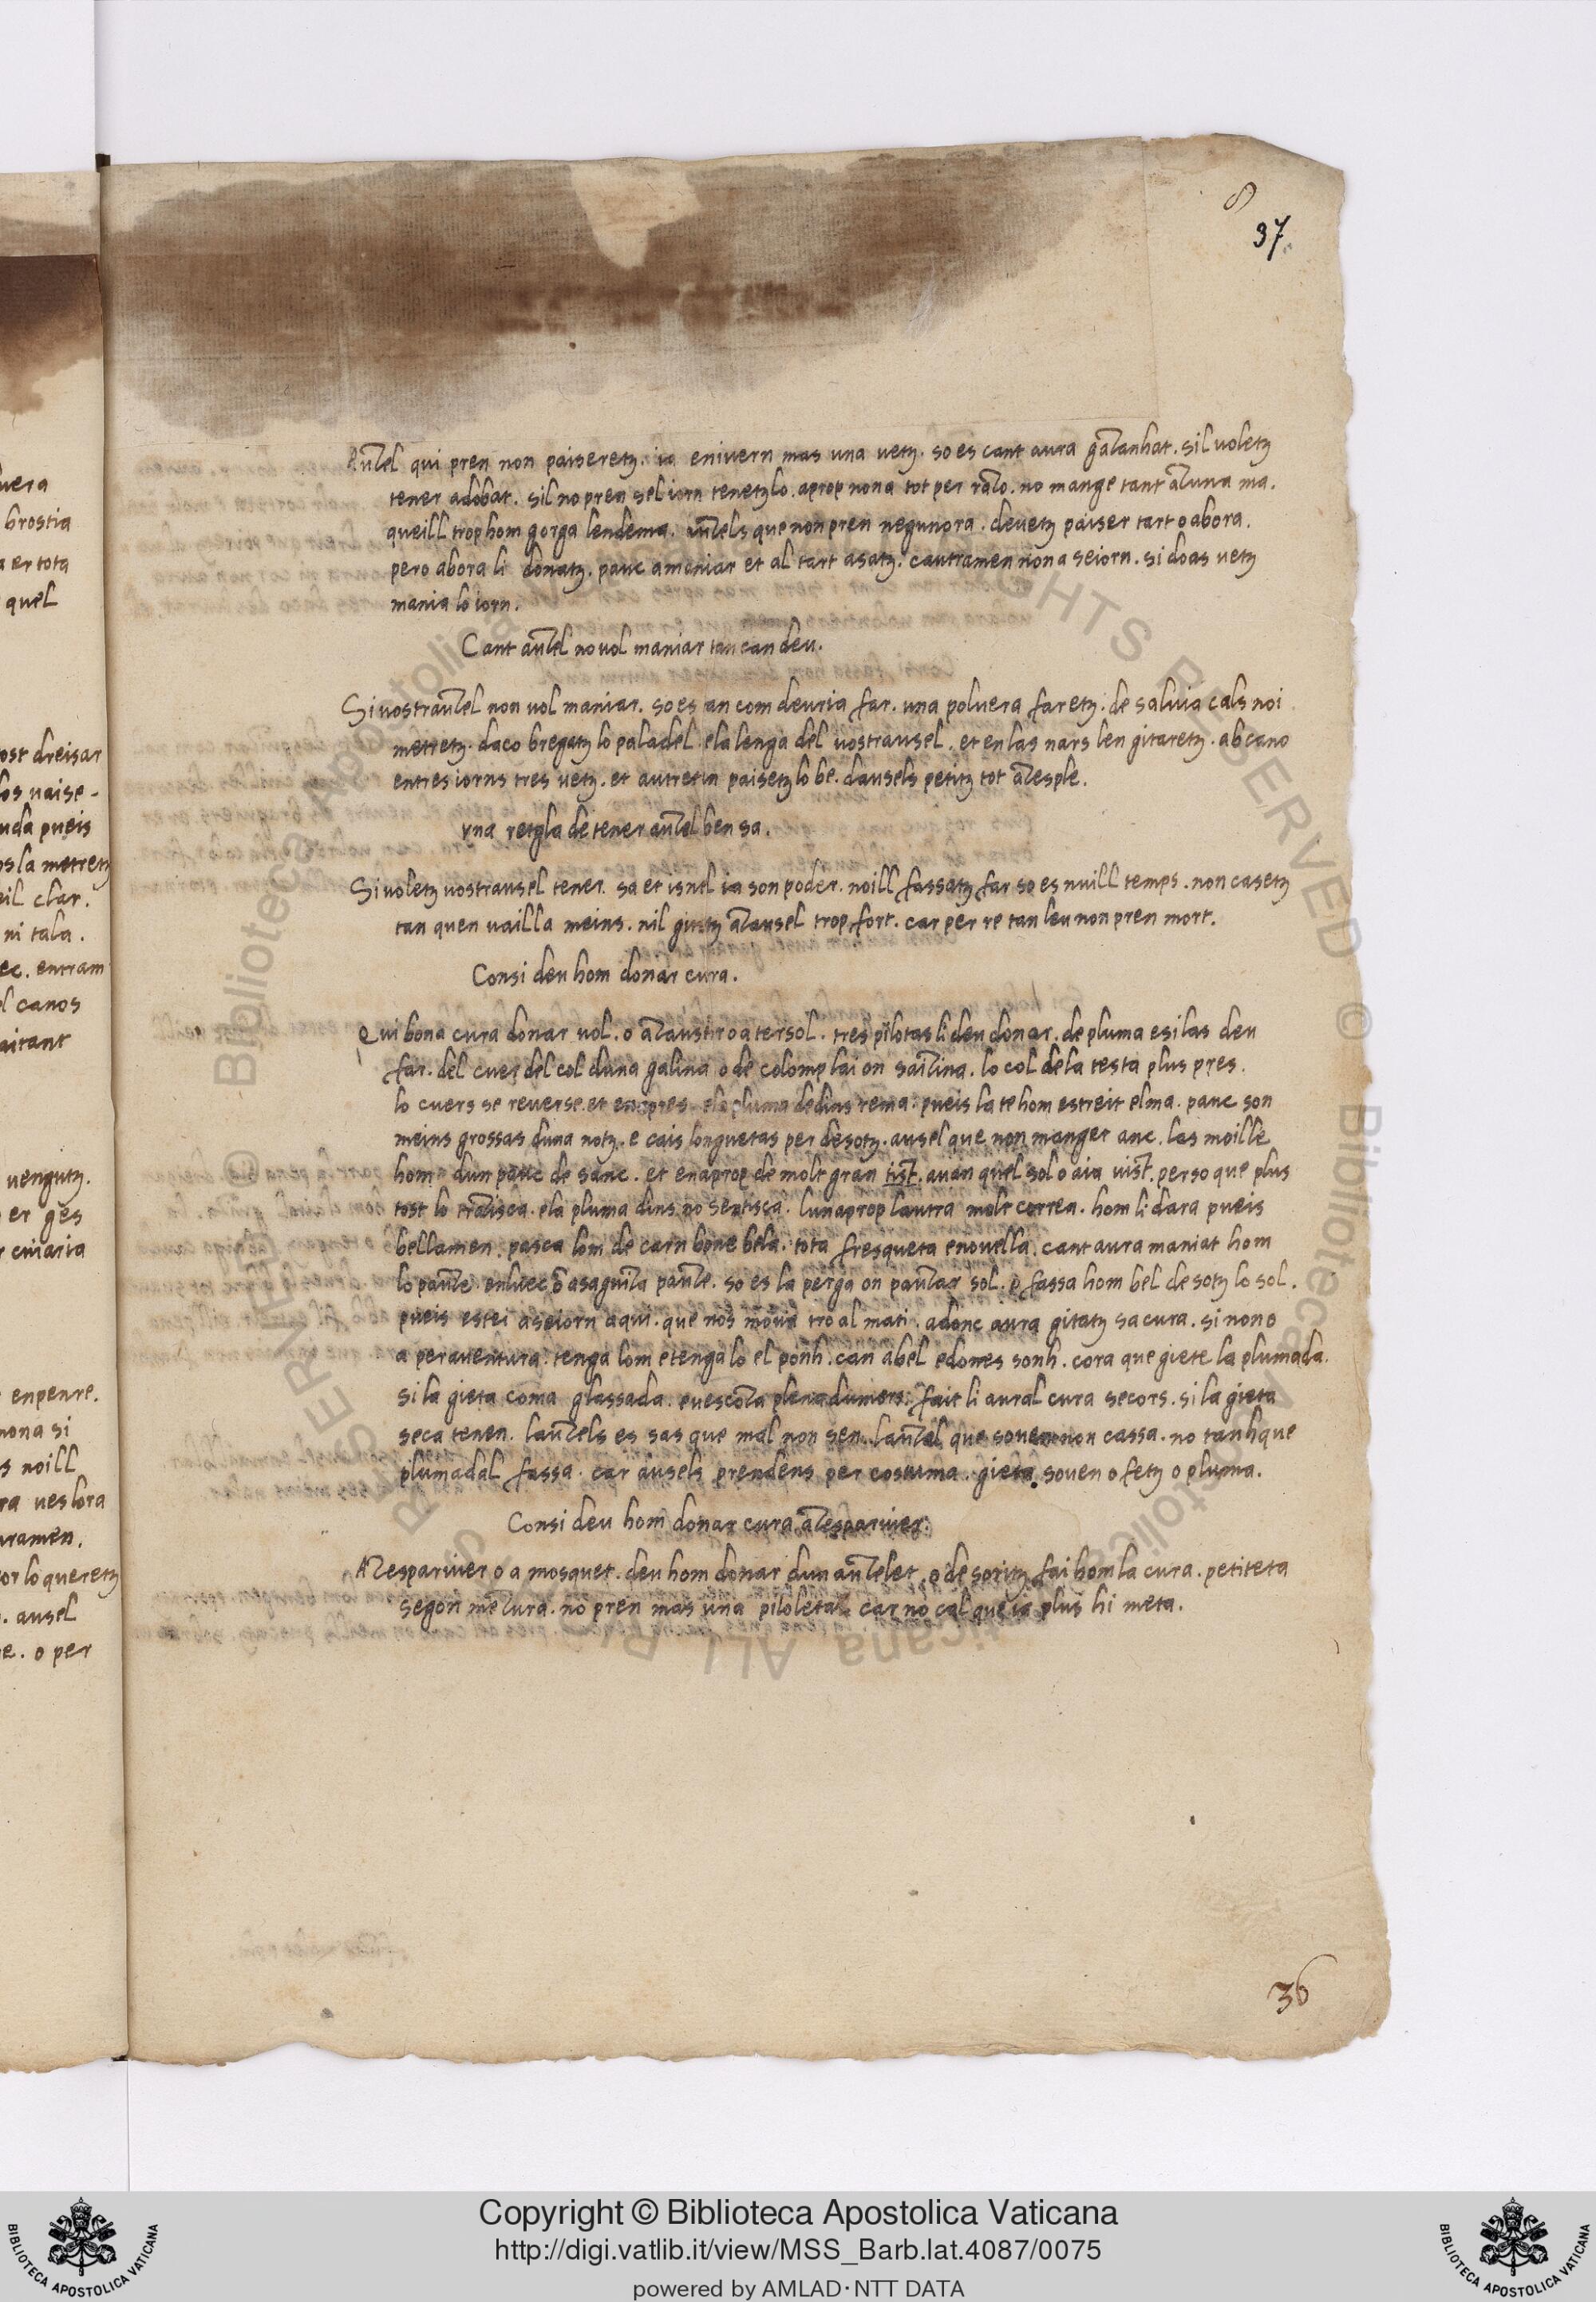 8
37.
Auzel qui pren non paiseretz. ia enivern mas una vetz. so es cant aura gazanhat. sil voletz
tener adobat. sil no pren sel iorn tenetz lo. aprop nona tot per razo. no mange tant azuna ma.
queill trop hom gorga lendema. auzels que non pren negun ora. devetz paiser tart o abora.
pero abora li donatz. pauc amaniar et al tart asatz. cautramen non a seiorn. si doas vetz
mania lo iorn.
Cant auzel no vol maniar tan can deu.
Si vostrauzel non vol maniar. so es an com deuria far. una polvera faretz. de salvia cals noi
metretz. daco bregatz lo paladel. ela lenga del vostrausel. et en las nars len gitaretz. ab cano
entres iorns tres vetz. et autretin paisetz lo be. dausels petitz tot azesple.
una retgla de tener auzel ben sa.
Si voletz vostrausel tener. sa et isnel ia son poder. noill fassatz far so es nuill temps. non casetz
tan quen vailla meins. nil gitetz azausel trop fort. car per re tan leu non pren mort.
Consi deu hom donar cura.
Qui bona cura donar vol. o azaustiro a tersol. tres pilotas li deu donar. de pluma e si las deu
far. del cuer del col duna galina o de colomp lai on saizina. lo col de la testa plus pres.
lo cuers se reverse. et enapres. ela pluma dedins rema. pueis la te hom estreit el ma. pauc son
meins grossas duna notz. e cais longuetas per desotz. ausel que non manger anc. las moille
hom dun pauc de sanc. et enaprop de molt gran tist. avan quel sol o aia vist. per so que plus
tost lo traisca. ela pluma dins no sentisca. lunaprop lautra molt correa. hom li dara pueis
bellamen. pasca lom de carn bone bela. tota fresqueta enovella. cant aura maniat hom
lo pauze. en luec dasaguiza pauze. so es la perga on pauzar sol. e fassa hom bel desotz lo sol.
pueis estei aseiorn aqui. que nos mova tro al mati. adonc aura gitatz sa cura. si non o
a peraventura. tenga lom e tenga lo el ponh. can abel edomes sonh. cora que giete la plumada.
si la gieta coma glassada. evescoza plena dumors. fait li aural cura secors. si la gieta
seca tenen. lauzels es sas que mal non sen. lauzel que soven non cassa. no tanh que
plumadal fassa. car ausels prendens per costuma. gieta soven o fetz o pluma.
Consi deu hom donar cura azesparvier.
Azesparvier o a mosquet. deu hom donar dun auzelet. o de soritz fai hom la cura. petiteta
segon mezura. no pren mas una piloleta. car no cal que ia plus hi meta.
36
vera
brostia
a er tota
quel
ost dreisar
los vaise-
uda pueis
os la metretz
eil clar.
ni tala.
ec. enram
ol canos
aitant
vengutz.
er ges
enpenre.
nona si
s noill
ra ves lora
uramen.
or lo queretz
ausel
e. o per
© Biblioteca Apostolica Vaticana ALL RIGHTS RESERVED
Copyright © Biblioteca Apostolica Vaticana
http://digi.vatlib.it/view/MSS_Barb.lat.4087/0075
powered by AMLAD·NTT DATA
BIBLIOTECA APOSTOLICA VATICANA
BIBLIOTECA APOSTOLICA VATICANA